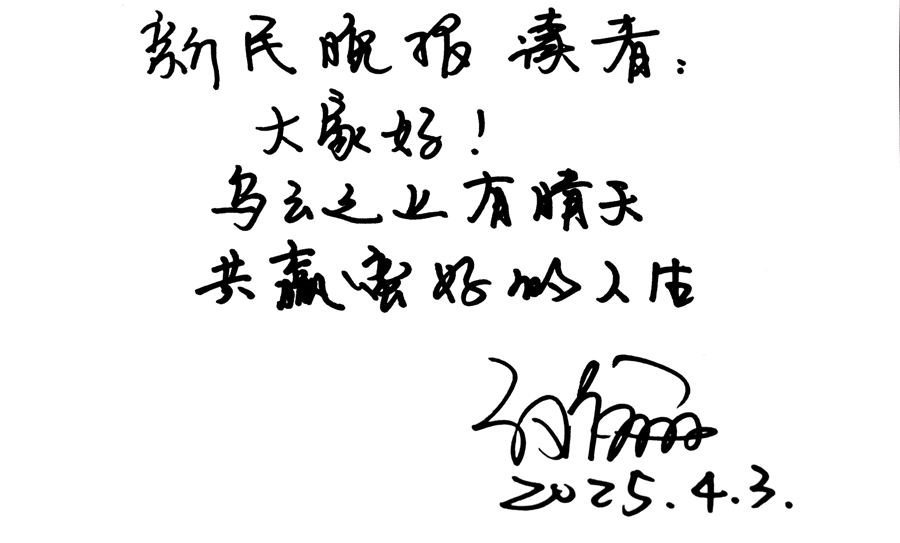 新民晚报读者:
大家好!
乌云之上有晴天
共赢美好的人生
孙俪
2025.4.3.